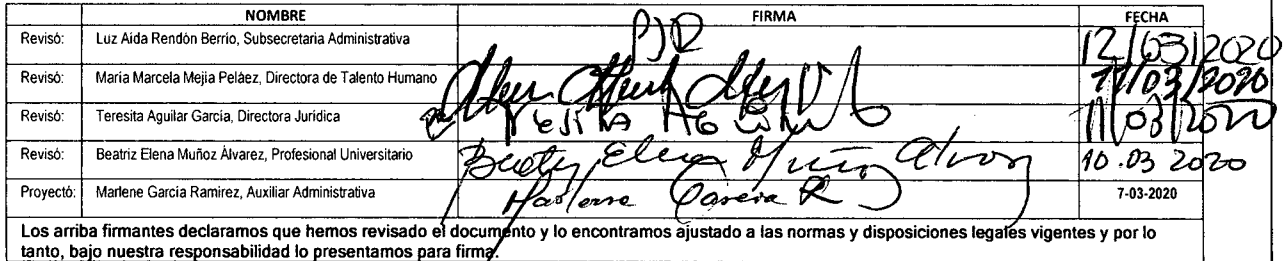 NOMBRE FIRMA FECHA
Revisó: Luz Aida Rendón Berrio, Subsecretaria Administrativa 12/03/2020
Revisó: María Marcela Mejía Peláez, Directora de Talento Humano 11/03/2020
Revisó: Teresita Aguilar García, Directora Jurídica 11/03/2020
Revisó: Beatriz Elena Muñoz Álvarez, Profesional Universitario Beatriz Elena Muñoz Alvarez 10.03 2020
Proyectó: Marlene García Ramirez, Auxiliar Administrativa Marlene García R 7-03-2020
Los arriba firmantes declaramos que hemos revisado el documento y lo encontramos ajustado a las normas y disposiciones legales vigentes y por lo
tanto, bajo nuestra responsabilidad lo presentamos para firma.